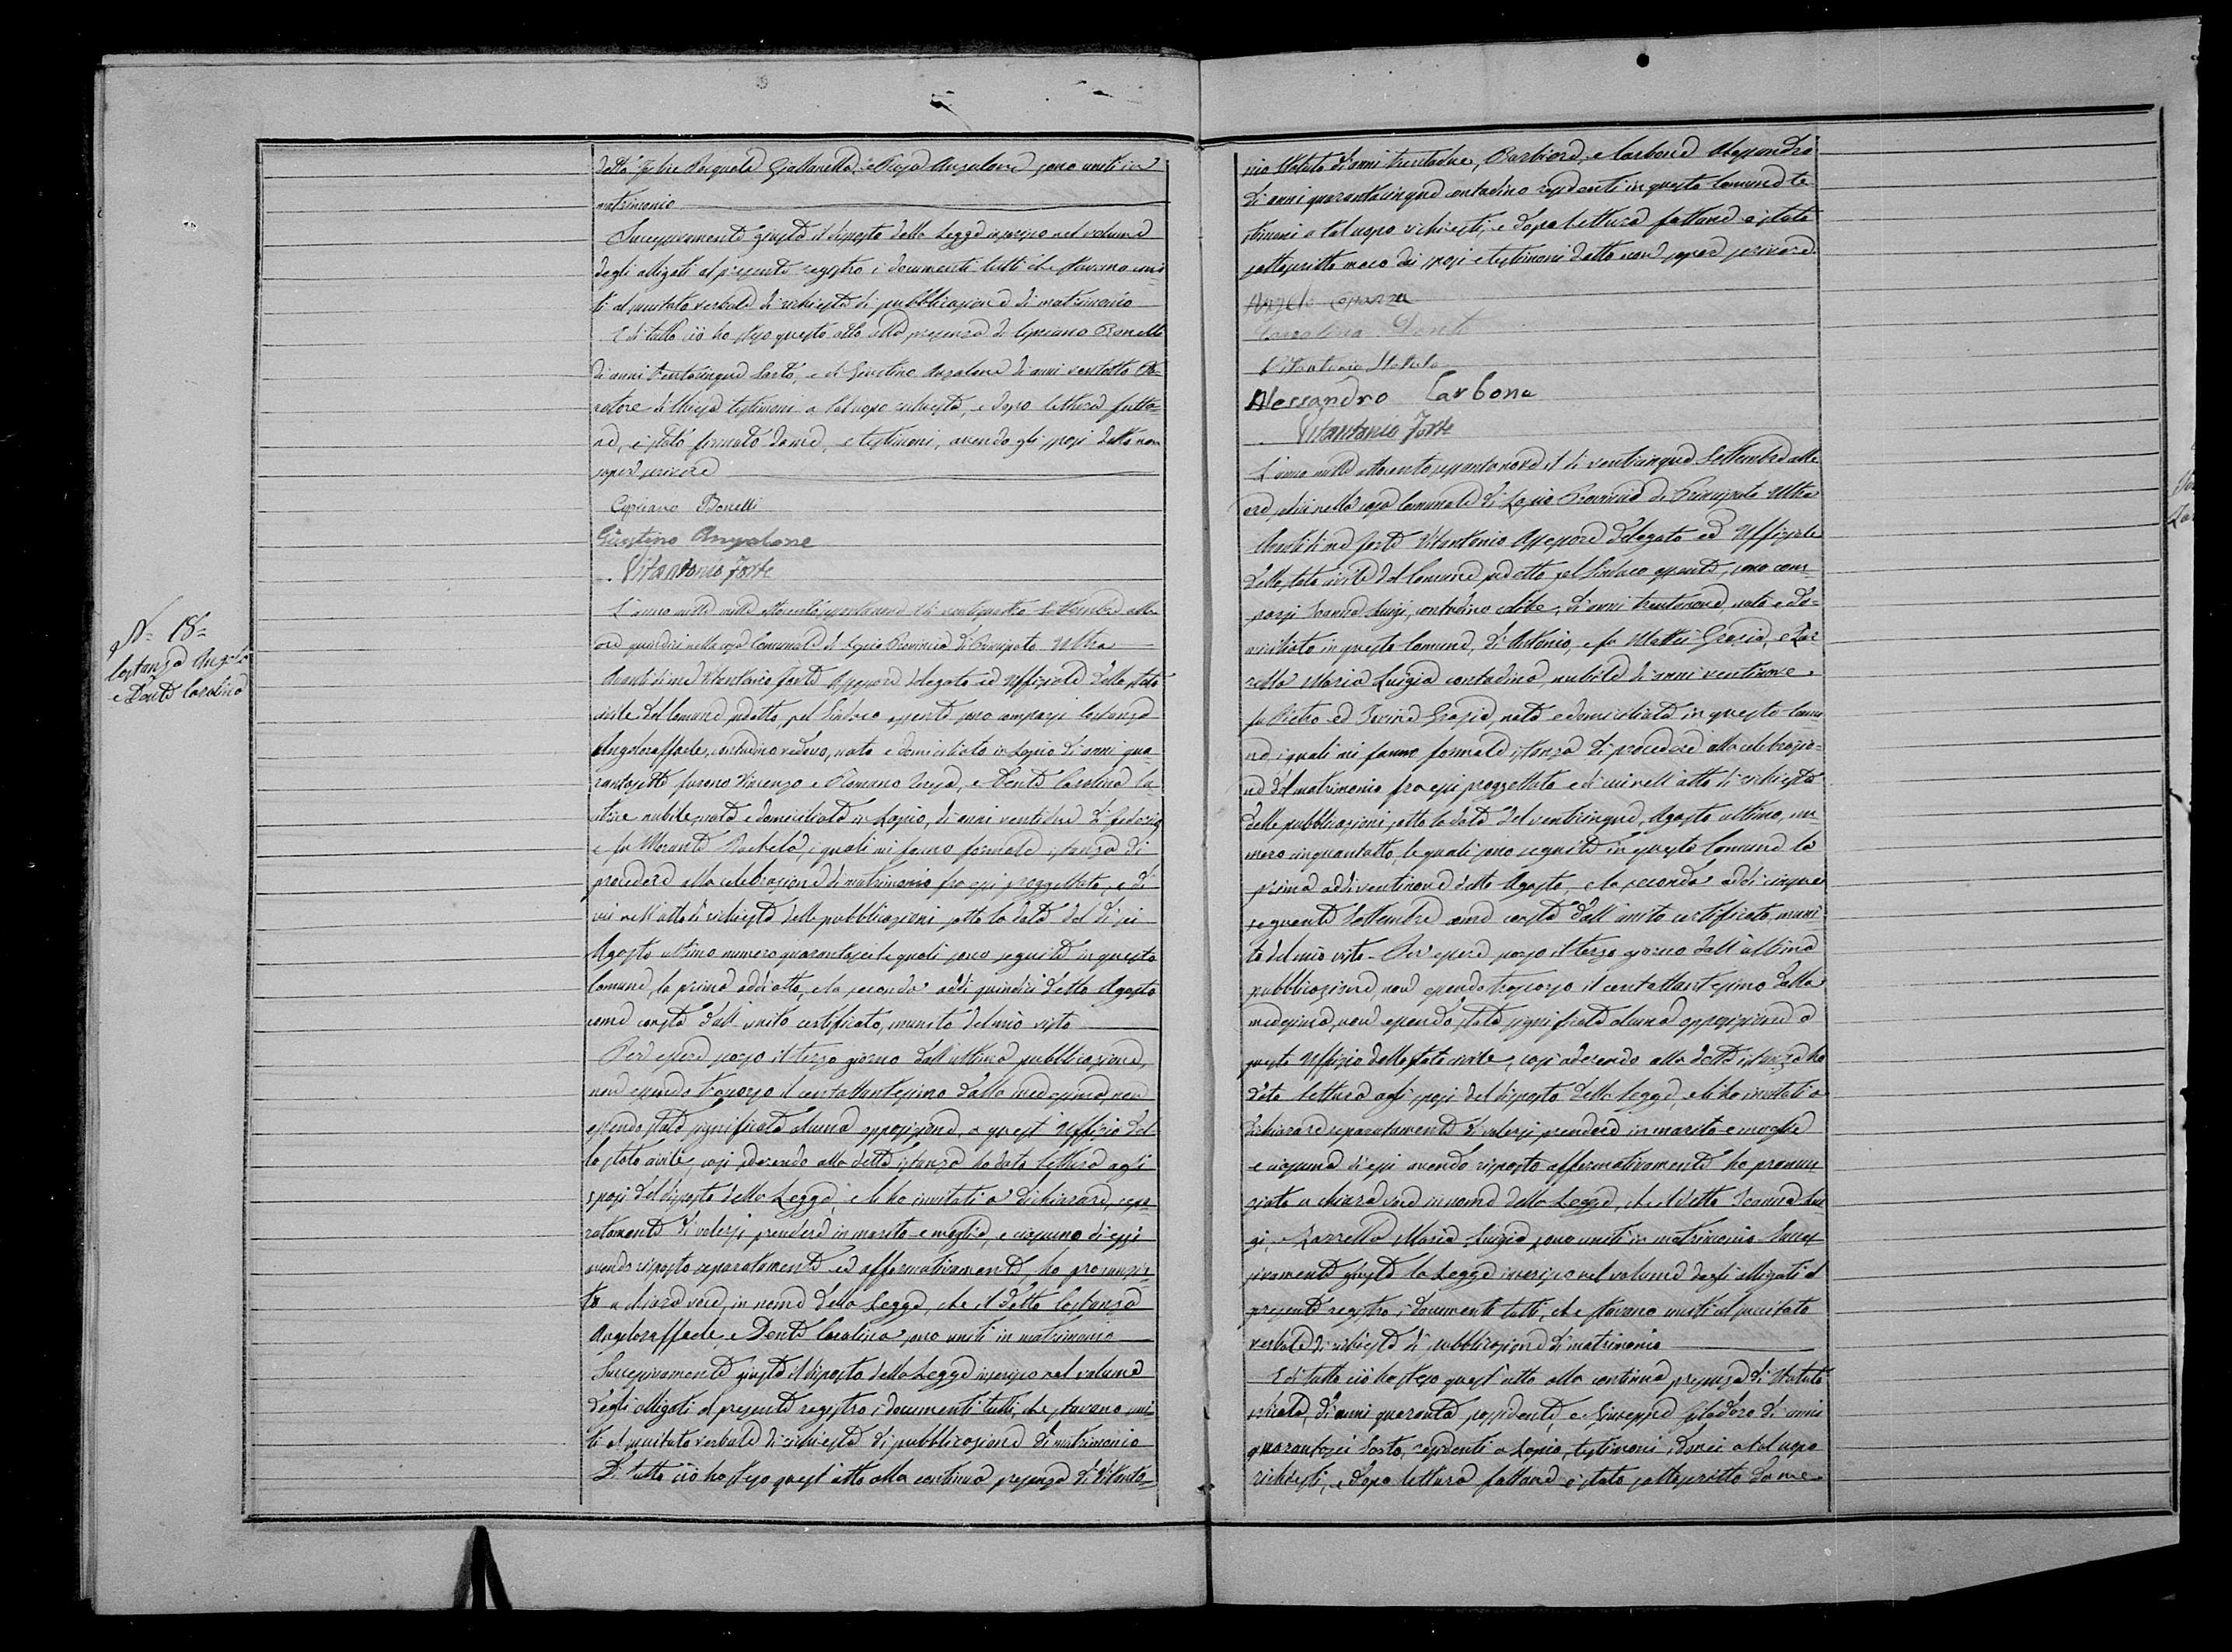 detto Forte Pasquale Giallanella, e Rosa Anzalone sono uniti in
matrimonio
Successivamente giusta il disposto della Legge inserisco nel volume
degli alligati al presente registro i documenti tutti che stavano uni
ti al succitato verbale di richiesta di pubblicazione di matrimonio
E di tutto ciò ho steso questo atto alla presenza di Cipriano Bonelli
di anni trentacinque Sarto, e di Giustino Anzalone di anni ventotto
di Chiesa testimoni a tal uopo richiesti, e dopo lettura fatta
ne, è stato firmato da me, e testimoni, avendo gli sposi detto non
saper scrivere
Cipriano Bonelli
Giustino Anzalone
Vitantonio Forte
N. 18
Costanza Angelo
e Dente Carolina
L'anno mille mille ottocento sessantanove il di ventiquattro Settembre alle
ore quindici nella casa Comunale di Lapio Provincia di Principato Ultra
Avanti di me Vitantonio Forte Assessore delegato ed Uffiziale dello stato
civile del Comune sudetto, pel Sindaco assente sono comparsi Costanza
Angeloraffaele, contadino vedovo, nato e domiciliato in Lapio di anni qua
rantasette furono Vincenzo e Romano, e Dente Carolina
nubile, nata e domiciliata in Lapio, di anni ventidue di Federico
e fu Morante Rachela, i quali mi fanno formale istanza di
procedere alla celebrazione di matrimonio fra essi proggettato, e di
cui nell'atto di richiesta delle pubblicazioni sotto la data del di sei
Agosto ultimo numero quarantasei le quali sono seguite in questo
Comune, la prima addì otto, e la seconda addì quindici detto Agosto
come consta dall'unito certificato, munito del mio visto
Per essere scorso il terzo giorno dall'ultima pubblicazione,
non essendo trascorso il centottantesimo dalla medesima, non
essendo stata significata alcuna opposizione, a quest'Uffizio del
lo stato civile, così aderendo alla detta istanza ho dato lettura agli
sposi del disposto della Legge, e li ho invitati a dichiarare, sepa
ratamente di volersi prendere in marito e moglie, e ciascuno di essi
avendo risposto separatamente ed affermativamente, ho pronunzia
to a chiara voce, in nome della Legge, che il detto Costanza
Angeloraffaele, e Dente Carolina sono uniti in matrimonio
Successivamente giusta il disposto della Legge inserisco nel volume
degli alligati al presente registro i documenti tutti, che stavano uni
ti al succitato verbale di richiesta di pubblicazione di matrimonio
Di tutto ciò ho steso quest'atto alla continua presenza di Vitanto
nio di anni trentadue, Barbiere, e Carbone Alessandro
di anni quarantacinque contadino residenti in questo Comune te
stimoni a tal uopo richiesti, e dopo lettura fattane è stato
sottoscritto meco dai sposi e testimoni detto non sapere scrivere
Angelo
Carolina Dente
Vitantonio
Alessandro Carbone
Vitantonio Forte
L'anno mille ottocento sessantanove il di venticinque Settembre alle
ore sedici nella casa Comunale di Lapio Provincia di Principato Ultra
Avanti di me Forte Vitantonio Assessore delegato ed Uffiziale
dello stato civile del Comune sudetto pel Sindaco assente, sono com
parsi Luigi, contadino celibe, di anni trentanove, nato e do
miciliato in questo Comune, di Antonio, e fu Mattei Grazia, e Zar
rella Maria Luigia contadina, nubile di anni ventinove
fu Pietro ed Grazia, nata e domiciliata in questo Comu
ne, i quali mi fanno formale istanza di procedere alla celebrazio
ne del matrimonio fra essi proggettato e di cui nell'atto di richiesta
delle pubblicazioni, sotto la data del venticinque Agosto ultimo, nu
mero cinquantotto, le quali sono seguite in questo Comune la
prima addì ventinove detto Agosto, e la seconda addì cinque
seguente Settembre come consta dall'unito certificato, muni
to del mio visto. Per essere scorso il terzo giorno dall'ultima
pubblicazione, non essendo trascorso il centottantesimo dalla
medesima, non essendo stata significata alcuna opposizione a
questo Uffizio dello stato civile, così aderendo alla detta istanza ho
dato lettura agli sposi del disposto della Legge, e li ho invitati a
dichiarare separatamente di volersi prendere in marito e moglie
e ciascuno di essi avendo risposto affermativamente ho pronun
ziato a chiara voce in nome della Legge, che il detto Lui
gi, e Zarrella Maria Luigia sono uniti in matrimonio. Succes
sivamente giusta la Legge inserisco nel volume degli alligati al
presente registro, i documenti tutti, che stavano uniti al succitato
verbale di richiesta di pubblicazione di matrimonio
E di tutto ciò ho steso quest'atto alla continua presenza di
di anni quaranta possidente, e Giuseppe di anni
quarantasei Sarto, residenti a Lapio, testimoni idonei a tal uopo
richiesti, e dopo lettura fattane è stato sottoscritto da me